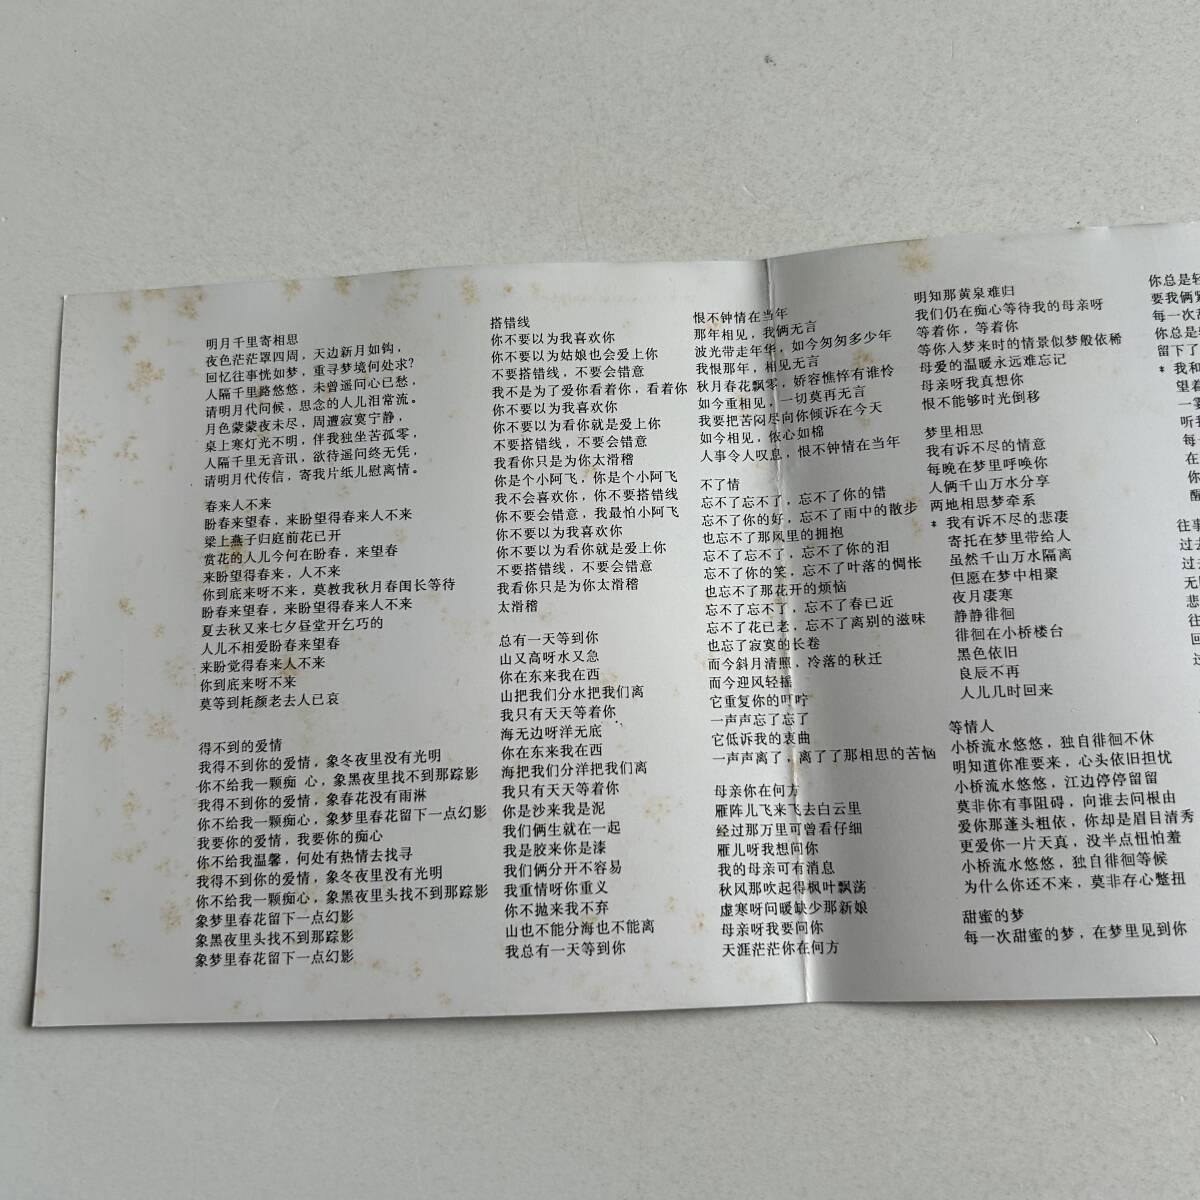 明月千里寄相思
夜色茫茫罩四周，天边新月如钩，
回忆往事恍如梦，重寻梦境何处求？
人隔千里路悠悠，未曾遥问心已愁，
请明月代问候，思念的人儿泪常流。
月色蒙蒙夜未尽，周遭寂寞宁静，
桌上寒灯光不明，伴我独坐苦孤零，
人隔千里无音讯，欲待遥问终无凭，
请明月代传信，寄我片纸儿慰离情。
春来人不来
盼春来望春，来盼望得春来人不来
梁上燕子归庭前花已开
赏花的人儿今何在盼春，来望春
来盼望得春来，人不来
你到底来呀不来，莫教我秋月春闺长等待
盼春来望春，来盼望得春来人不来
夏去秋又来七夕昼堂开乞巧的
人儿不相爱盼春来望春
来盼觉得春来人不来
你到底来呀不来
莫等到耗颜老去人已哀
得不到的爱情
我得不到你的爱情，象冬夜里没有光明
你不给我一颗痴 心，象黑夜里找不到那踪影
我得不到你的爱情，象春花没有雨淋
你不给我一颗痴心，象梦里春花留下一点幻影
我要你的爱情，我要你的痴心
你不给我温馨，何处有热情去找寻
我得不到你的爱情，象冬夜里没有光明
你不给我一颗痴心，象黑夜里头找不到那踪影
象梦里春花留下一点幻影
象黑夜里头找不到那踪影
象梦里春花留下一点幻影
搭错线
你不要以为我喜欢你
你不要以为姑娘也会爱上你
不要搭错线，不要会错意
我不是为了爱你看着你，看着你
你不要以为我喜欢你
你不要以为看你就是爱上你
不要搭错线，不要会错意
我看你只是为你太滑稽
你是个小阿飞，你是个小阿飞
我不会喜欢你，你不要搭错线
你不要会错意，我最怕小阿飞
你不要以为我喜欢你
你不要以为看你就是爱上你
不要搭错线，不要会错意
我看你只是为你太滑稽
太滑稽
总有一天等到你
山又高呀水又急
你在东来我在西
山把我们分水把我们离
我只有天天等着你
海无边呀洋无底
你在东来我在西
海把我们分洋把我们离
我只有天天等着你
你是沙来我是泥
我们俩生就在一起
我是胶来你是漆
我们俩分开不容易
我重情呀你重义
你不抛来我不弃
山也不能分海也不能离
我总有一天等到你
恨不钟情在当年
那年相见，我俩无言
波光带走年华，如今匆匆多少年
我恨那年，相见无言
秋月春花飘零，娇容憔悴有谁怜
如今重相见，一切莫再无言
我要把苦闷尽向你倾诉在今天
如今相见，依心如棉
人事令人叹息，恨不钟情在当年
不了情
忘不了忘不了，忘不了你的错
忘不了你的好，忘不了雨中的散步
也忘不了那风里的拥抱
忘不了忘不了，忘不了你的泪
忘不了你的笑，忘不了叶落的惆怅
也忘不了那花开的烦恼
忘不了忘不了，忘不了春已近
忘不了花已老，忘不了离别的滋味
也忘了寂寞的长卷
而今斜月清照，冷落的秋迁
而今迎风轻摇
它重复你的叮咛
一声声忘了忘了
它低诉我的衷曲
一声声离了，离了了那相思的苦恼
母亲你在何方
雁阵儿飞来飞去白云里
经过那万里可曾看仔细
雁儿呀我想问你
我的母亲可有消息
秋风那吹起得枫叶飘荡
虚寒呀问暖缺少那新娘
母亲呀我要问你
天涯茫茫你在何方
明知那黄泉难归
我们仍在痴心等待我的母亲呀
等着你，等着你
等你人梦来时的情景似梦般依稀
母爱的温暖永远难忘记
母亲呀我真想你
恨不能够时光倒移
梦里相思
我有诉不尽的情意
每晚在梦里呼唤你
人俩千山万水分享
两地相思梦牵系
* 我有诉不尽的悲凄
寄托在梦里带给人
虽然千山万水隔离
但愿在梦中相聚
夜月凄寒
静静徘徊
徘徊在小桥楼台
黑色依旧
良辰不再
人儿几时回来
等情人
小桥流水悠悠，独自徘徊不休
明知道你准要来，心头依旧担忧
小桥流水悠悠，江边停停留留
莫非你有事阻碍，向谁去问根由
爱你那蓬头粗依，你却是眉目清秀
更爱你一片天真，没半点忸怕羞
小桥流水悠悠，独自徘徊等候
为什么你还不来，莫非存心蹩扭
甜蜜的梦
每一次甜蜜的梦，在梦里见到你
你总是轻
要我俩紧
每一次甜
你总是
留下了
* 我和
望着
一雾
听我
每一
在
你
往事
过去
过去
无
悲
往
回